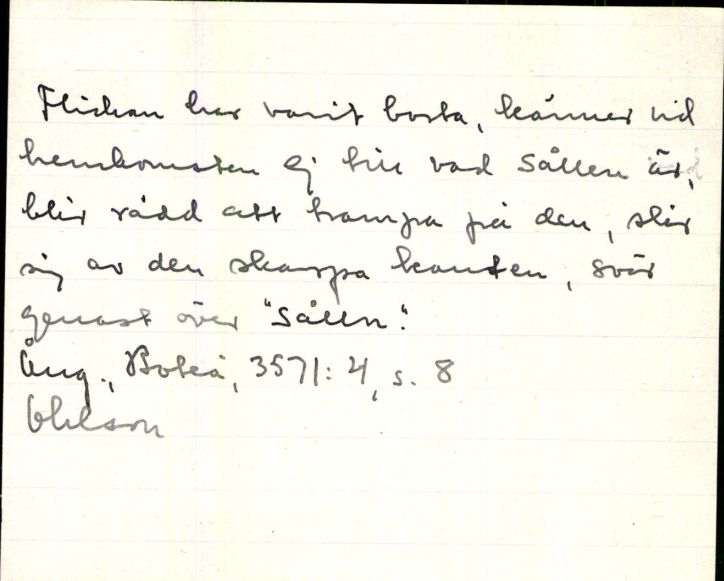 Flickan har varit borta, känner vid
hemkomsten ej till vad Sållen är,
blir rädd att trampa på den, slår
sig av den skarpa kanten, svär
genast över "Sålln".
Ång., Boteå, 3571: 4, s. 8
Ohlson